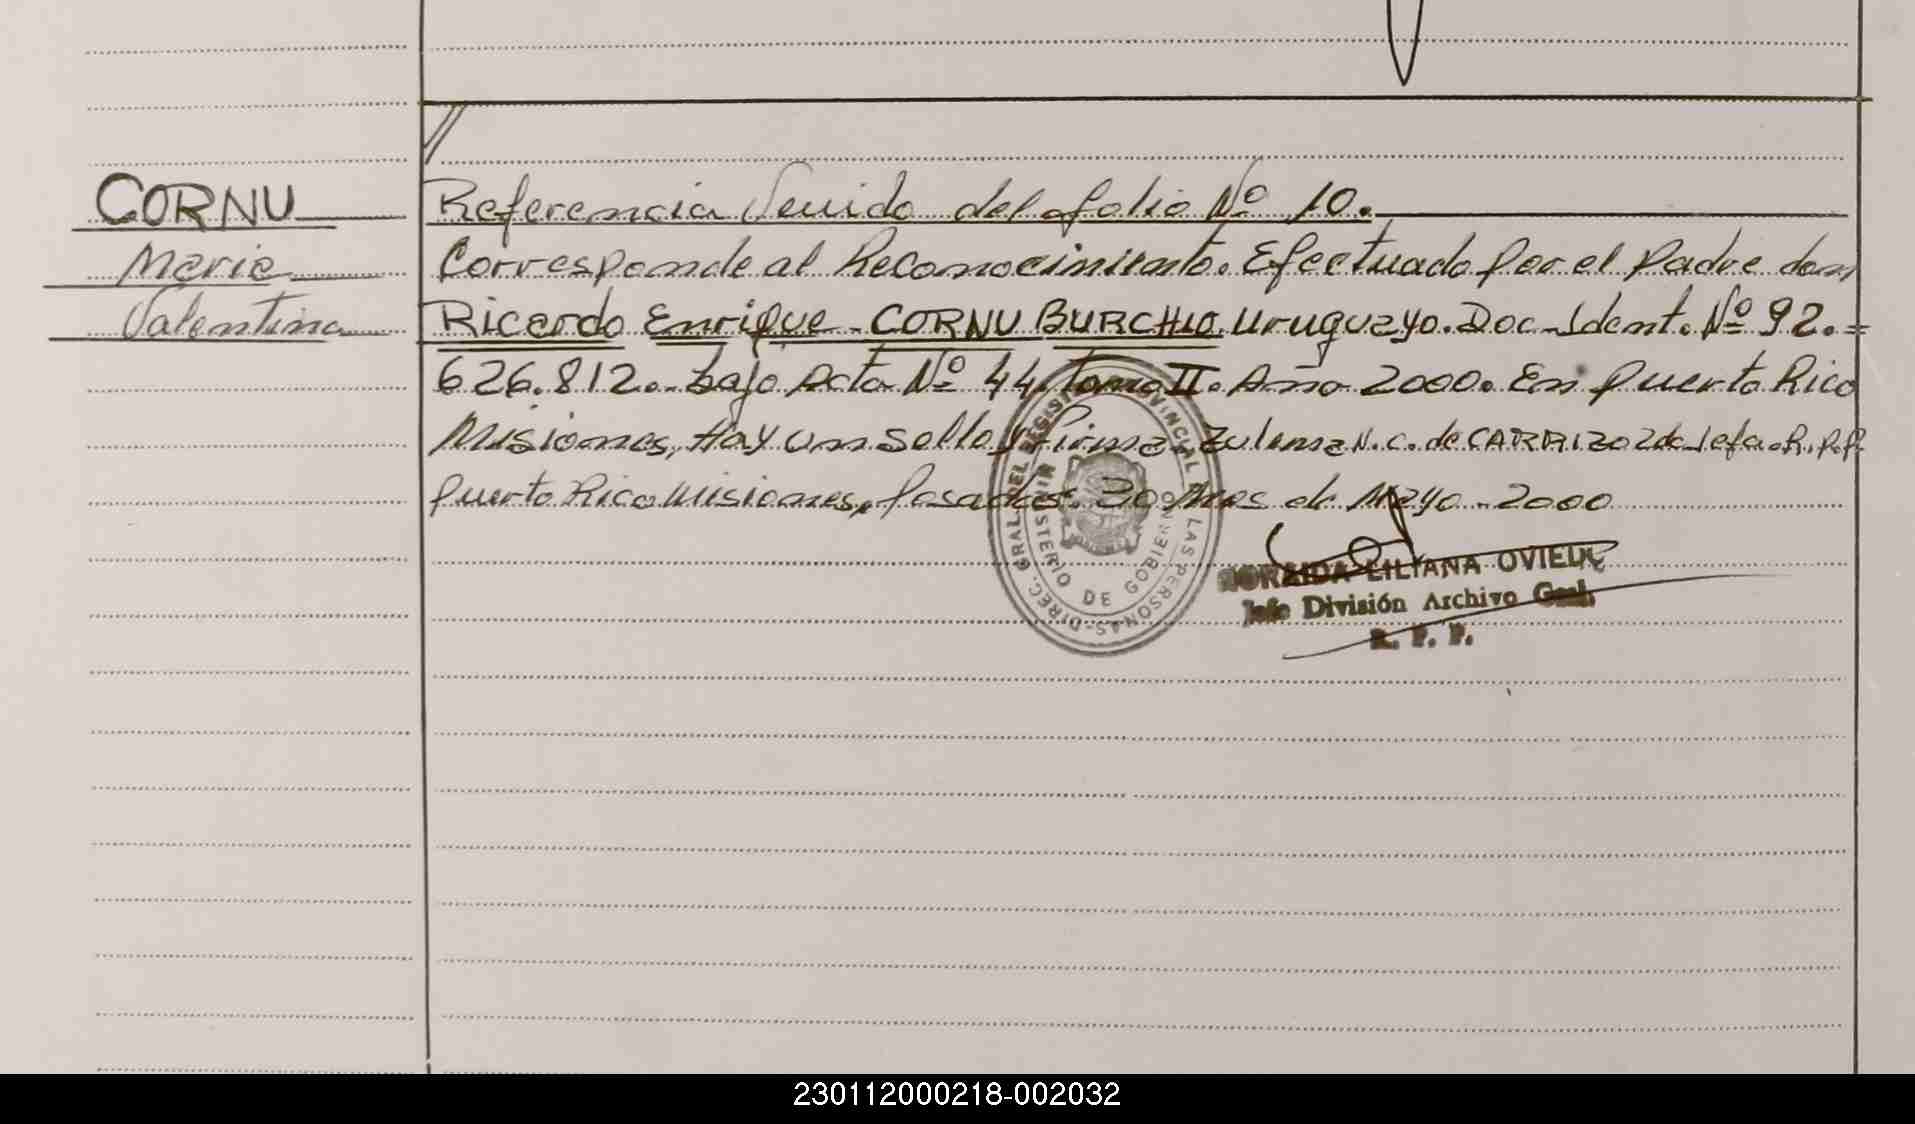 CORNU
Maria
Valentina
Referencia Venida del folio Nº 10.
Corresponde al Reconocimiento. Efectuado por el Padre don
Ricardo Enrique CORNU BURCHIO. Uruguayo. Doc. Ident. Nº 92.=
626.812.- bajo Acta Nº 44. tomo II. Año 2000. En Puerto Rico
Misiones, Hay un sello y Firma. Zulema N. C. de CARRIZO 2da Jefa. R.P.P.
Puerto Rico Misiones, Posadas. 30 Mes de Mayo - 2000
DIREC. GRAL. DEL REGISTRO PROVINCIAL DE LAS PERSONAS
MINISTERIO DE GOBIERNO
LILIANA OVIEDO
Jefe División Archivo Gral.
R. P. P.
230112000218-002032